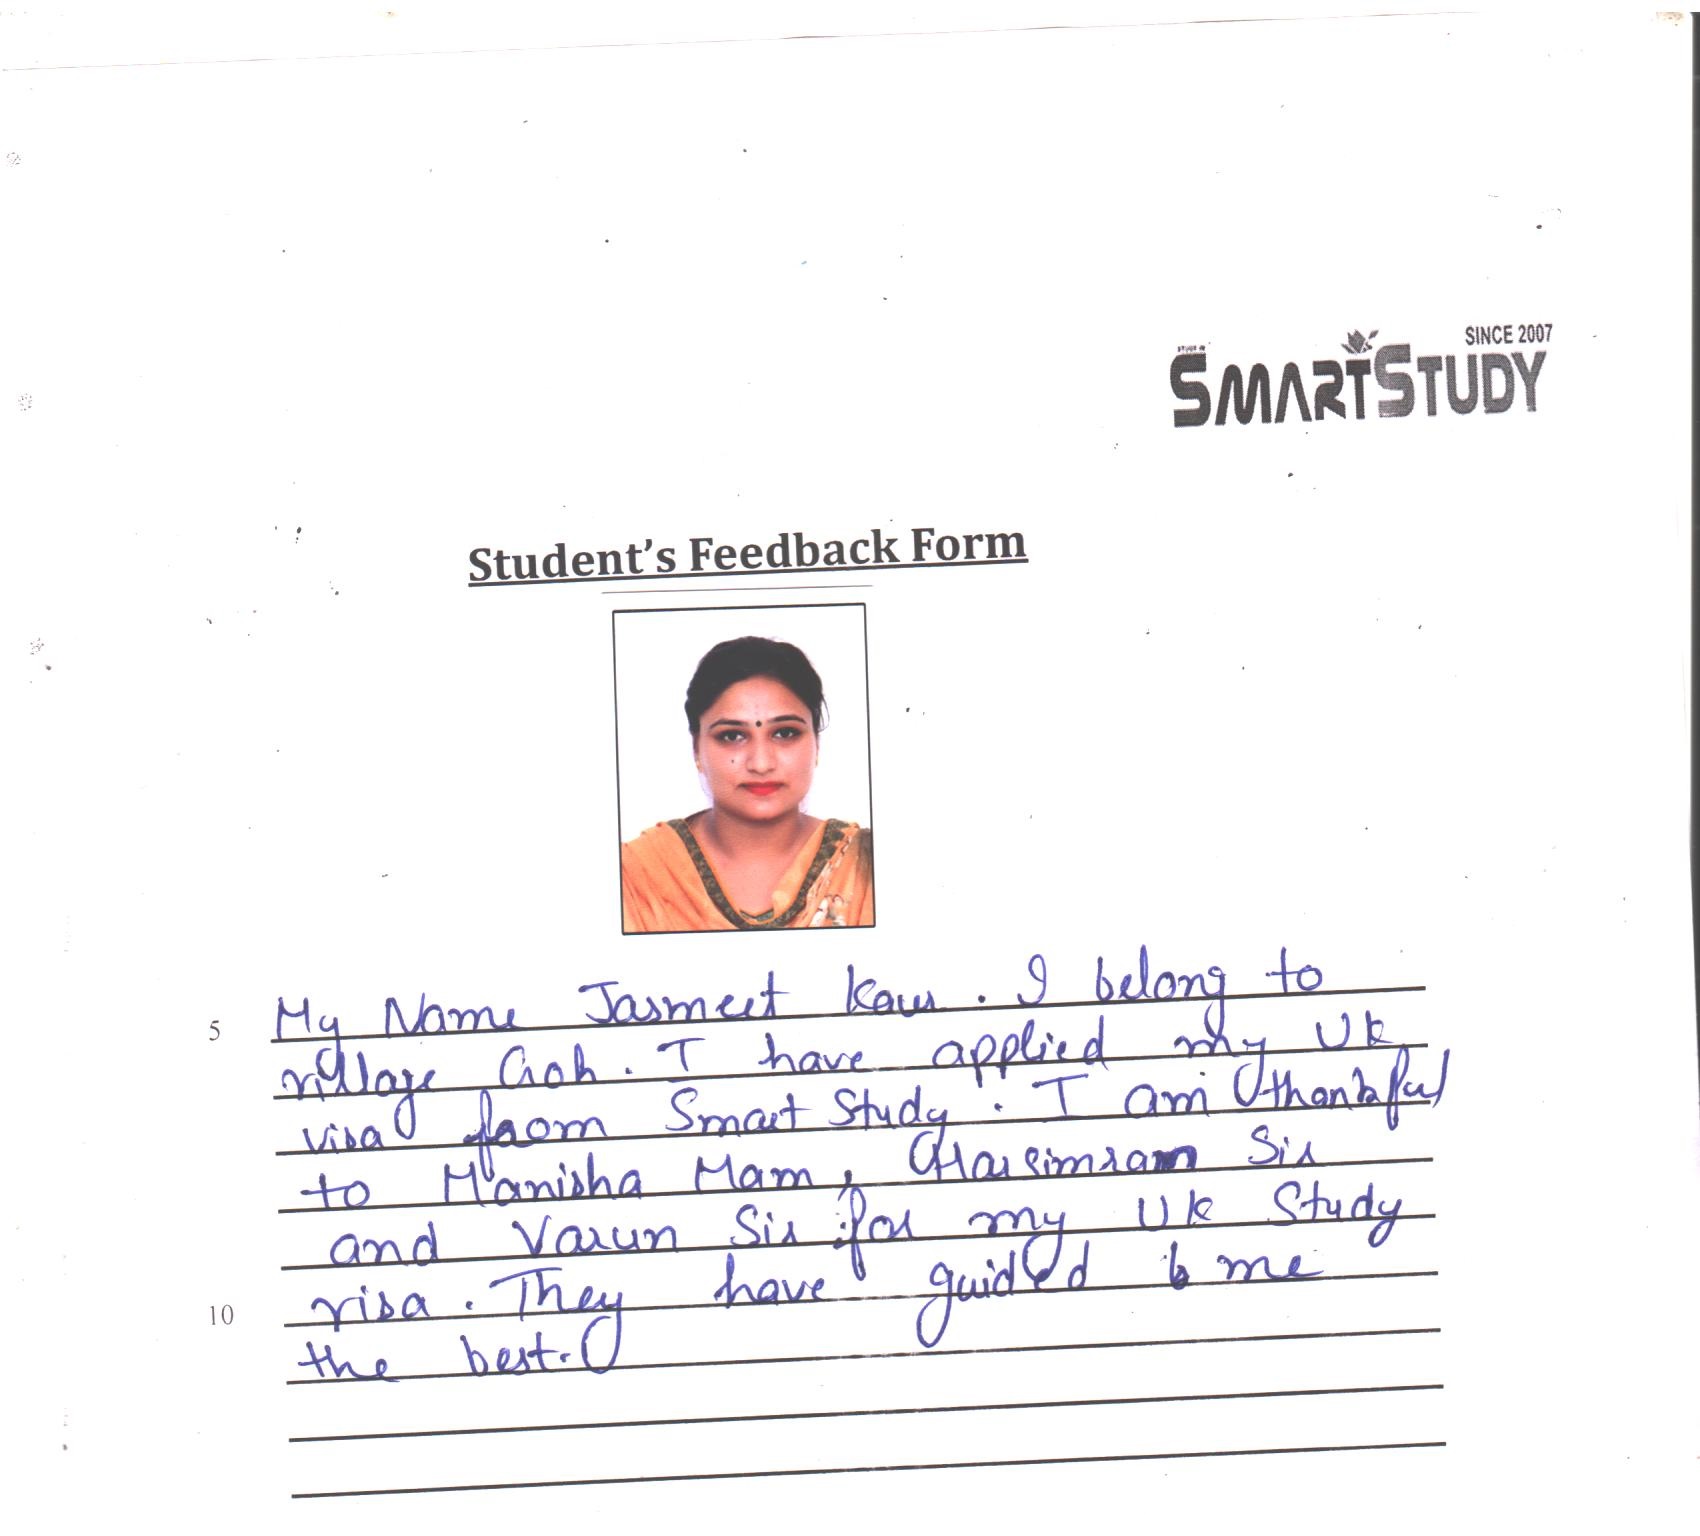 SINCE 2007
SMARTSTUDY
Student's Feedback Form
5 My Name Jasmeet Kaur. I belong to
village Goh. I have applied my UK
visa from Smart Study. I am thankful
to Manisha Mam, Harsimran Sir
and Varun Sir for my UK Study
10 visa. They have guided me
the best.